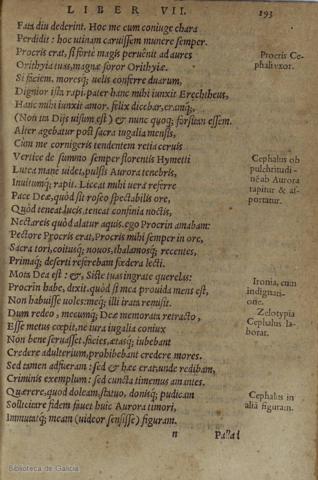 LIBER VII.
193
Fata diu dederint. Hoc me cum coniuge chara
Perdidit: hoc utinam caruissem munere semper.
Procris erat, si forte magis peruênit ad aures
Orithyia tuas, magnæ soror Orithyiæ.
Si faciem, moresq; uelis conferre duarum,
Dignior ista rapi. pater hanc mihi iunxit Erechtheus,
Hanc mihi iunxit amor. felix dicebar, eramq;,
(Non ita Dijs uisum est) & nunc quoq; forsitan essem.
Alter agebatur post sacra iugalia mensis,
Cùm me cornigeris tendentem retia ceruis
Vertice de summo semper florentis Hymetti
Lutea manè uidet, pulsis Aurora tenebris,
Inuitumq; rapit. Liceat mihi uera referre
Pace Deæ, quòd sit roseo spectabilis ore,
Quòd teneat lucis, teneat confinia noctis,
Nectareis quòd alatur aquis. ego Procrin amabam:
Pectore Procris erat, Procris mihi semper in ore,
Sacra tori, coitusq; nouos, thalamosq; recentes,
Primaq; deserti referebam fœdera lecti.
Mota Dea est: &, Siste tuas ingrate querelas:
Procrin habe, dixit. quòd si mea prouida mens est,
Non habuisse uoles: meq; illi irata remisit.
Dum redeo, mecumq; Deæ memorata retracto,
Esse metus cœpit, ne iura iugalia coniux
Non bene seruasset. facies, ætasq; iubebant
Credere adulterium, prohibebant credere mores.
Sed tamen adfueram: sed & hæc erat, unde redibam,
Criminis exemplum: sed cuncta timemus amantes.
Quærere, quod doleam, statuo, donisq; pudicam
Sollicitare fidem. fauet huic Aurora timori,
Immutatq; meam (uideor sensisse) figuram.
n
Palla
Procris Ce-
phali vxor.
Cephalus ob
pulchritudi-
nē ab Aurora
rapitur & as-
portatur.
Ironia, cum
indignati-
one.
Zelotypia
Cephalus la-
borat.
Cephalus in
aliā figuram.
Biblioteca de Galicia